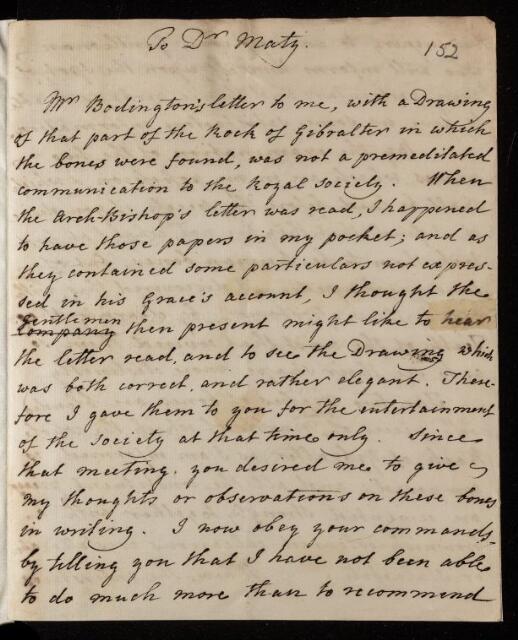 To Dr Maty.
152
Mr Bodington's letter to me, with a Drawing
of that part of the Rock of Gibralter in which
the bones were found, was not a premeditated
communication to the Royal Society. When
the Arch-Bishop's letter was read, I happened
to have those papers in my pocket; and as
they contained some particulars not expres-
sed in his Grace's account, I thought the
Gentlemen
Company then present might like to hear
the letter read, and to see the Drawing which
was both correct, and rather elegant. There-
fore I gave them to you for the entertainment
of the society at that time only. Since
that meeting. you desired me to give
my thoughts or observations on these bones
in writing. I now obey your commands,
by telling you that I have not been able
to do much more than to recommend